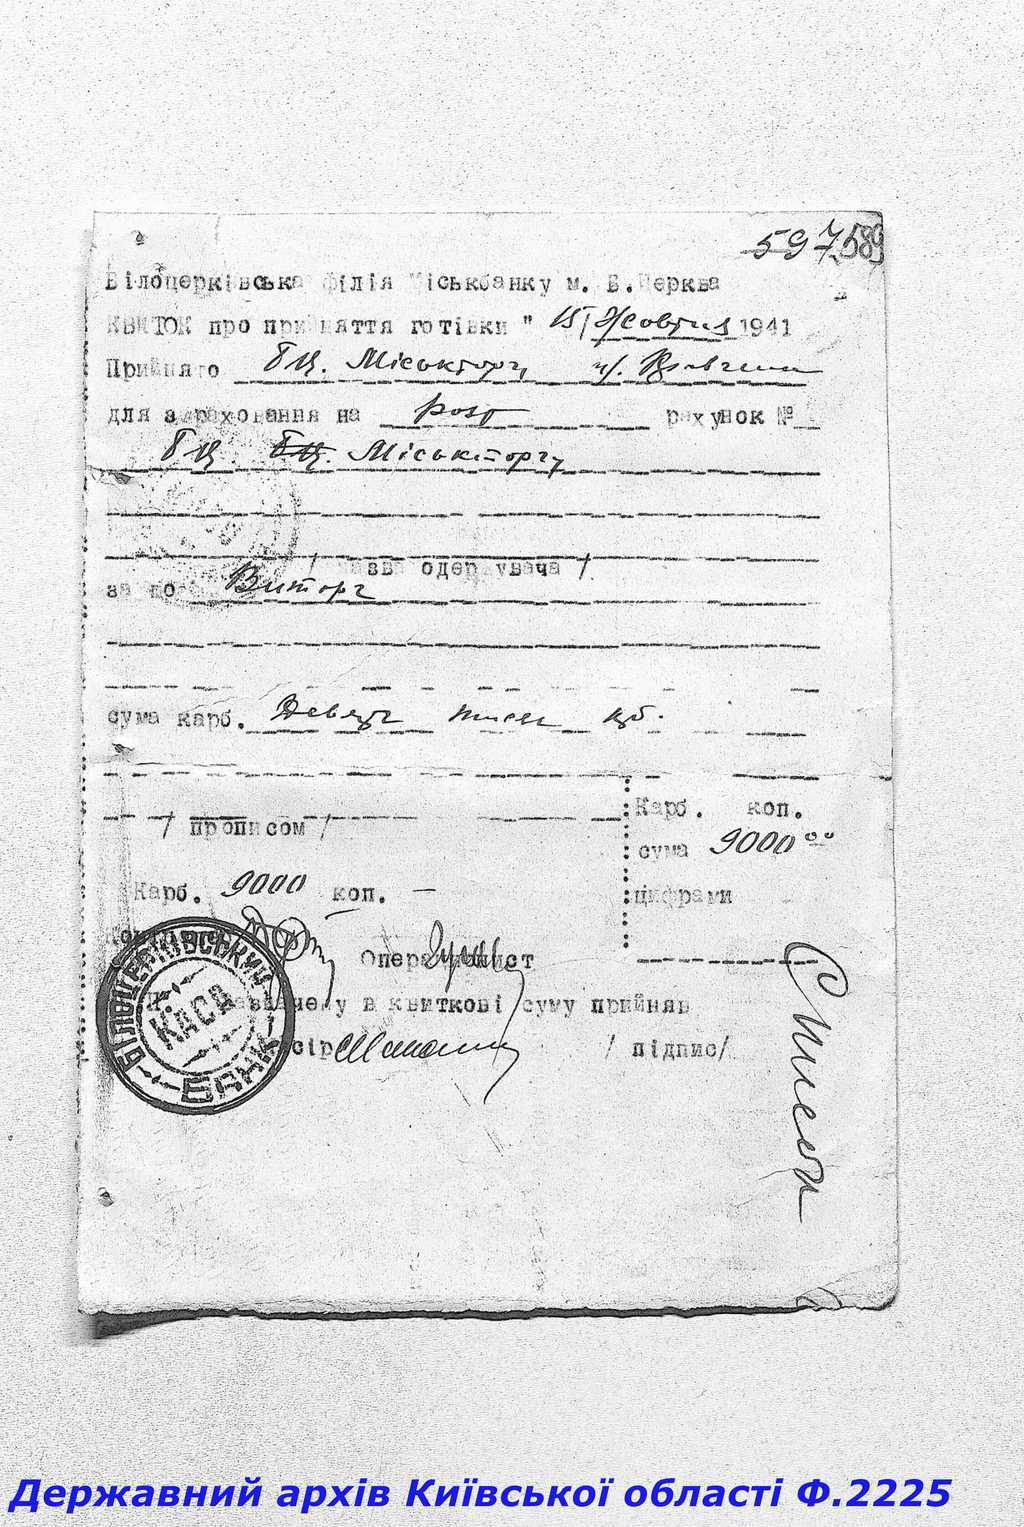 597 589
Білоцерківська філія Міськбанку м. Б.Церква
КВИТОК про прийняття готівки " 15/ Жовтня 1941
Прийнято БЦ. Міськторгу ч/.
для зарахования на розр рахунок №
БЦ БЦ. Міськторгу
/ назва одержувача /
за що Виторг
сума карб. Девять тисяч крб.
/ прописом /
Карб. коп.
сума 9000 00
цифрами
Карб. 9000 коп. —
Операціонист
зазначену в квиткові суму прийняв
сір / підпис/
БІЛОЦЕРКІВСЬКИЙ БАНК
КАСА
Державний архів Київської області Ф.2225